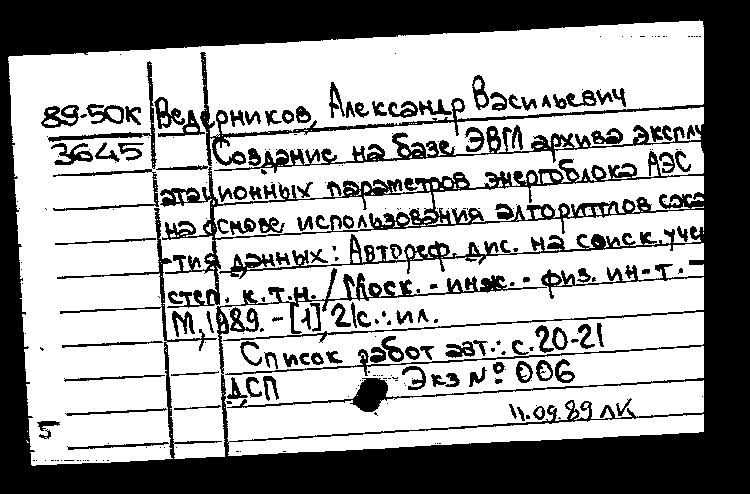 89-50К Ведерников, Александр Васильевич
3645 Создание на базе ЭВМ архива эксплу
атационных параметров энергоблока АЭС
на основе использования алгоритмов сжа
-тия данных: Автореф. дис. на соиск. учен
степ. к.т.н. / Моск. - инж. - физ. ин-т. -
М, 1989. - [1], 21с.: ил.
Список работ авт.: с. 20-21
ДСП Экз № 006
11.09.89 ЛК